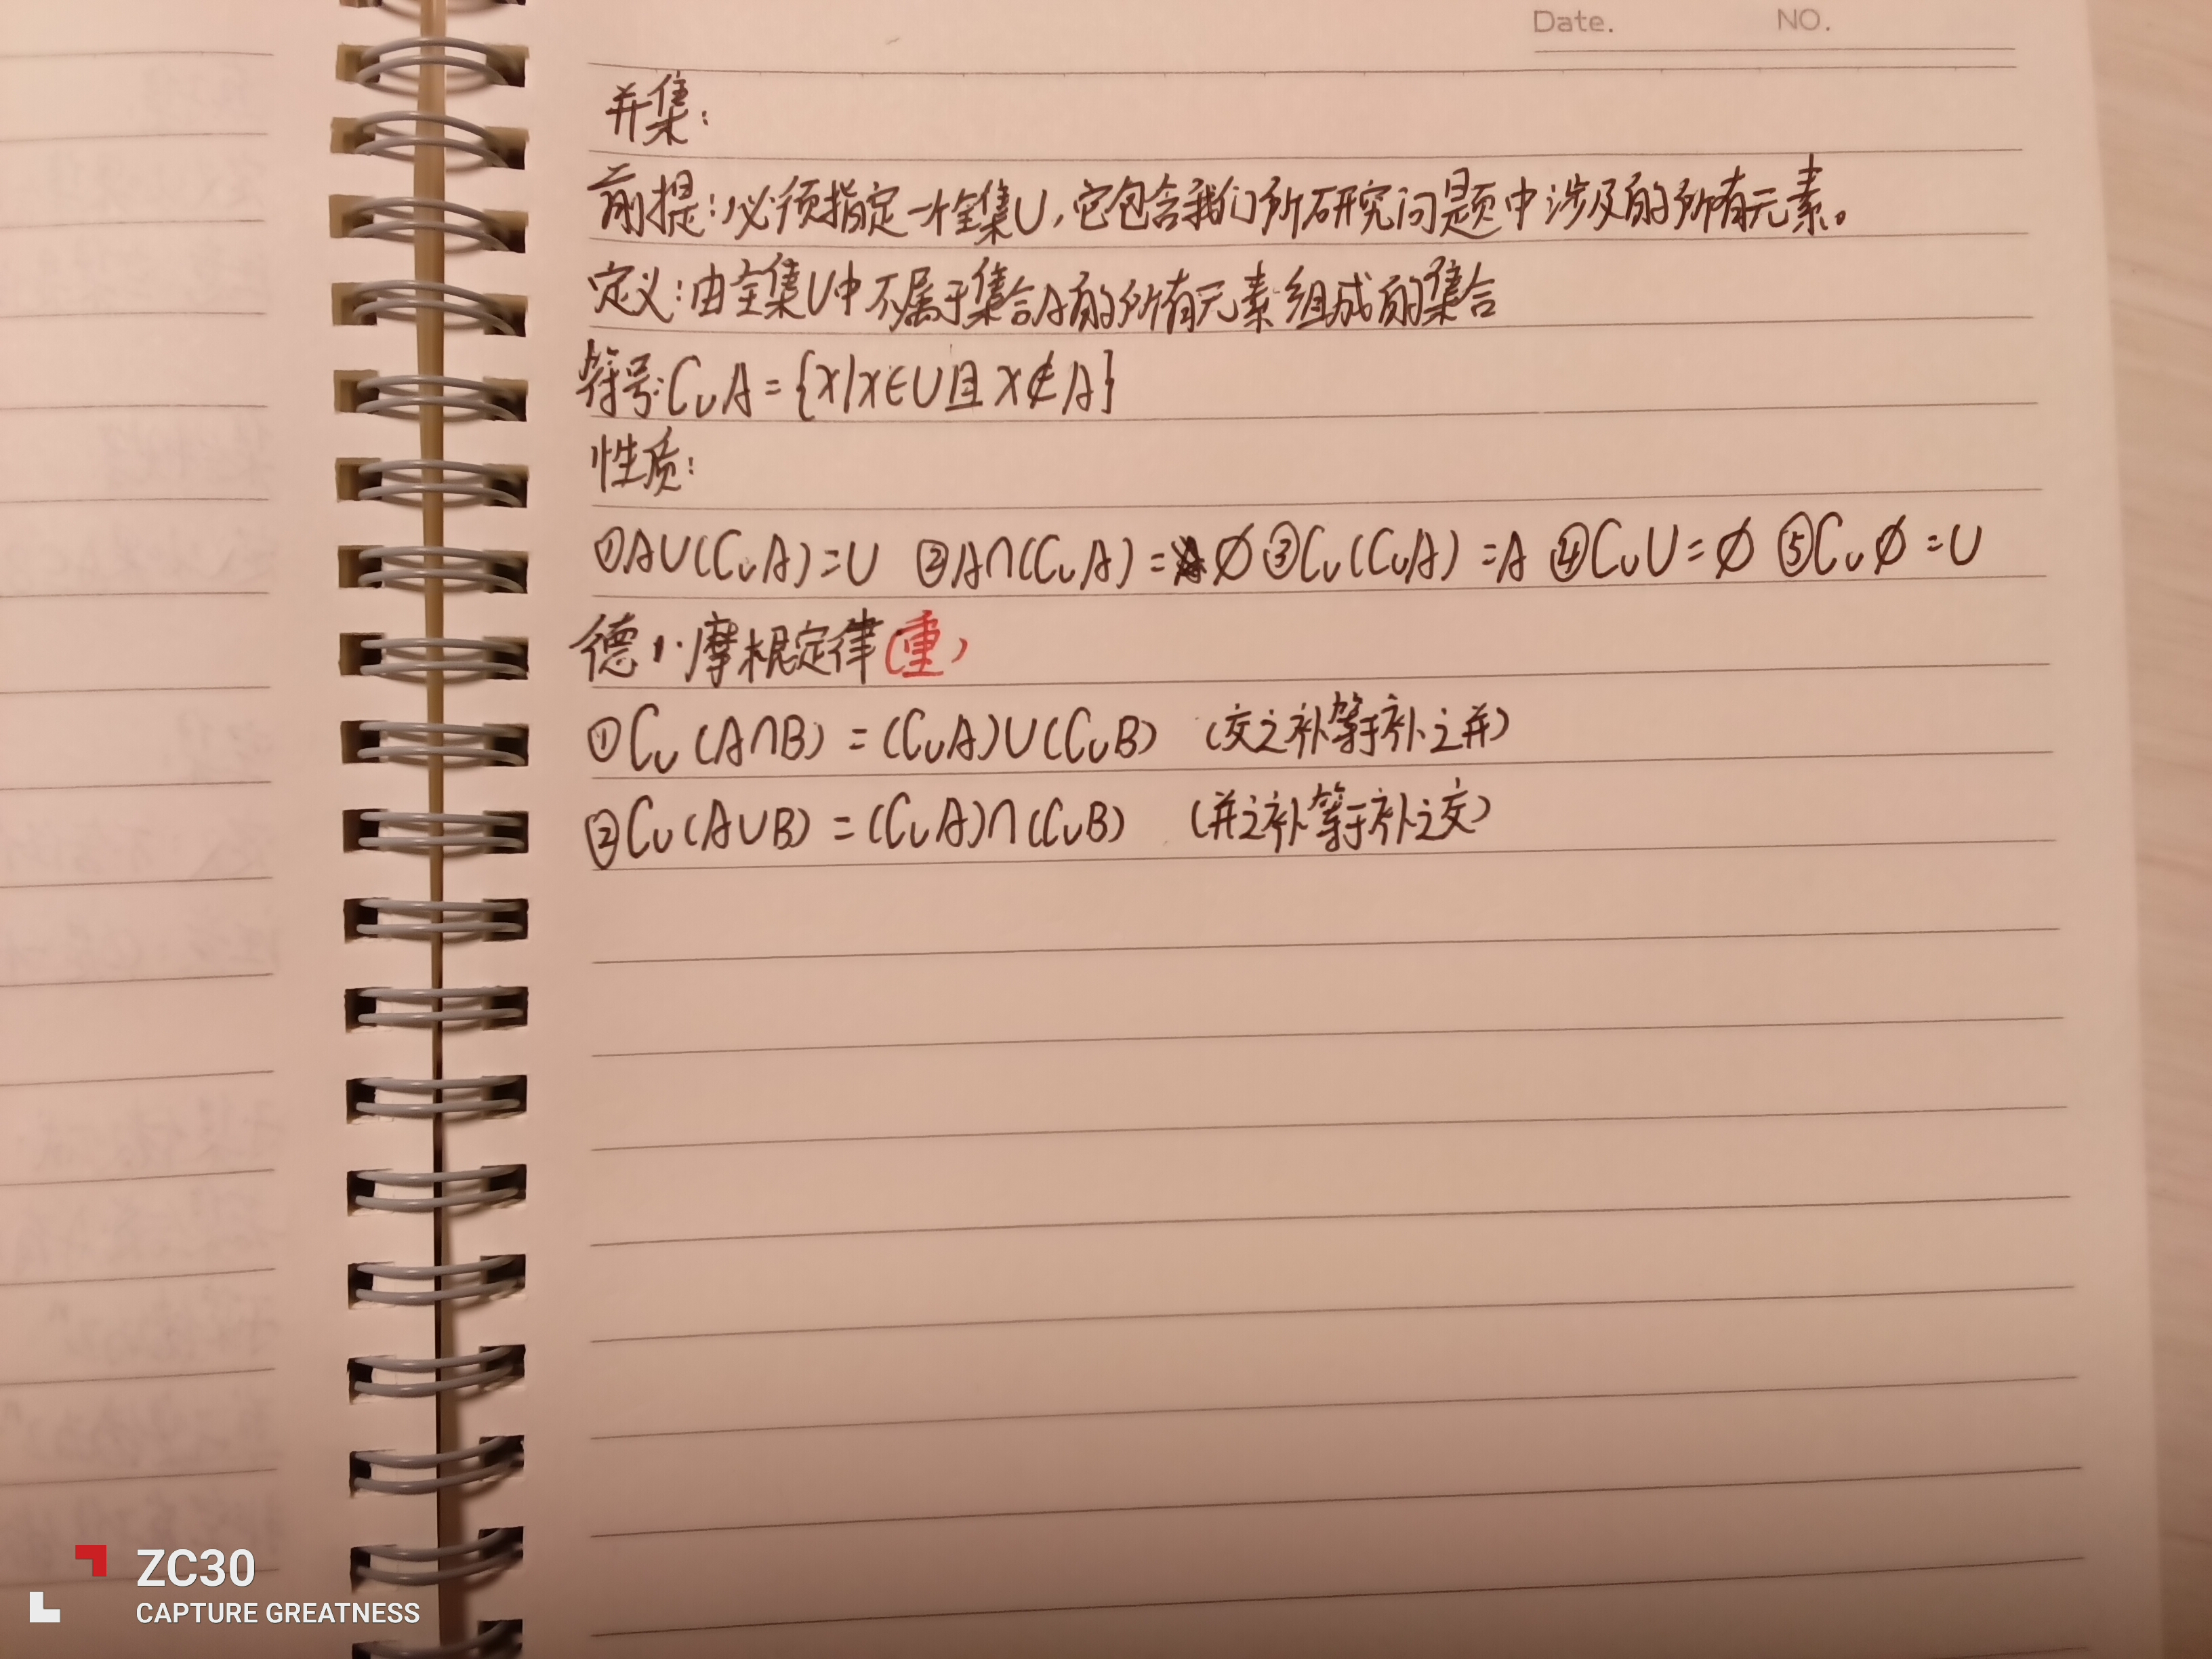 Date. NO.
并集:
前提:必须指定一个全集U,它包含我们所研究问题中涉及的所有元素。
定义:由全集U中不属于集合A的所有元素组成的集合
符号:CᵤA={x|x∈U且x∉A}
性质:
①A∪(CᵤA)=U ②A∩(CᵤA)=∅ ③Cᵤ(CᵤA)=A ④CᵤU=∅ ⑤Cᵤ∅=U
德·摩根定律(重)
①Cᵤ(A∩B)=(CᵤA)∪(CᵤB) (交之补等于补之并)
②Cᵤ(A∪B)=(CᵤA)∩(CᵤB) (并之补等于补之交)
ZC30
CAPTURE GREATNESS